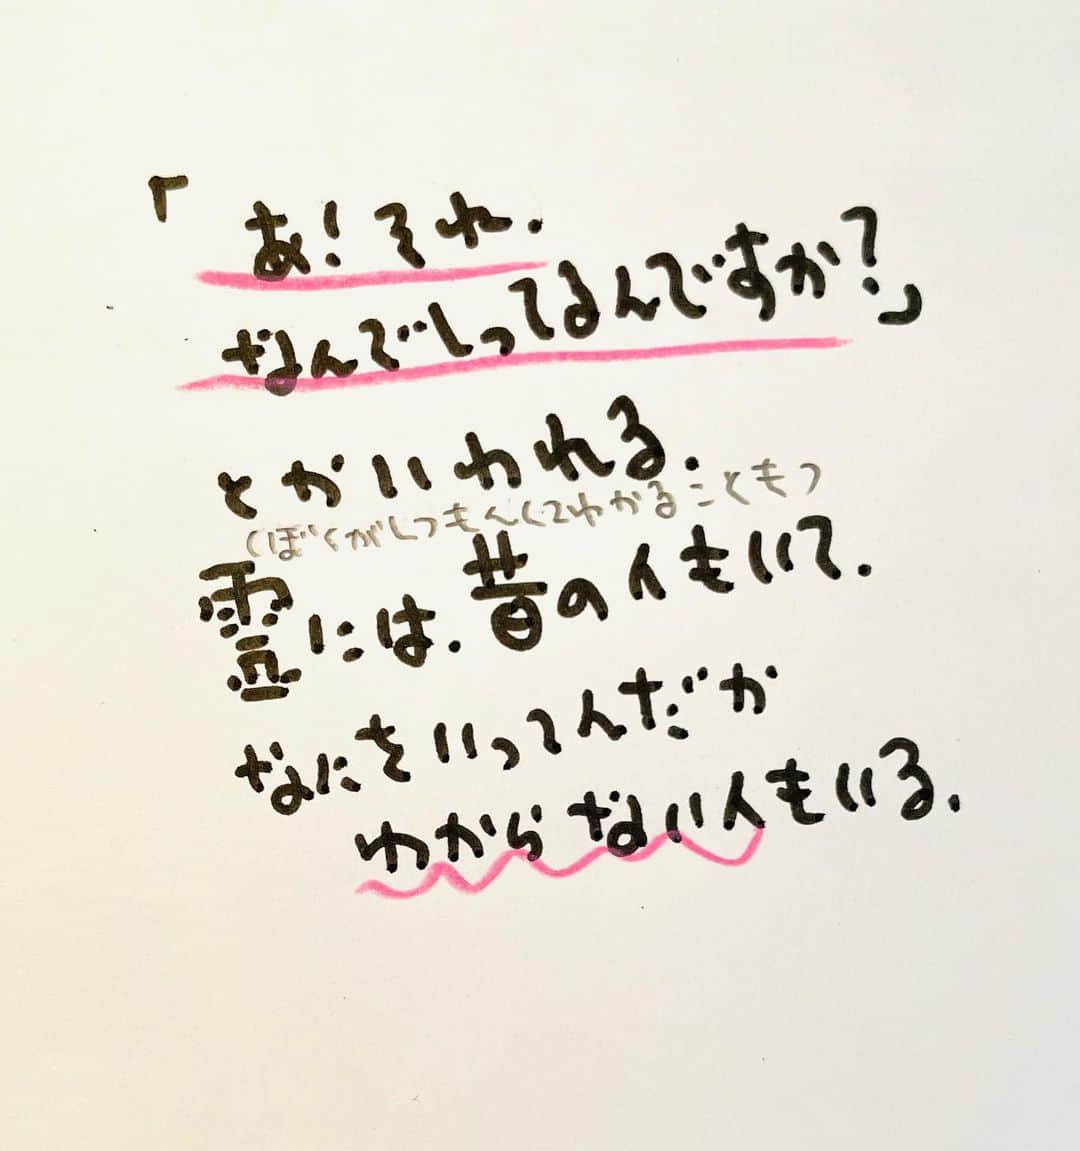 「あ!それ.
なんでしってるんですか?」
とかいわれる.
(ぼくがしつもんしてわかることも)
霊には.昔の人もいて.
なにをいってんだか
わからない人もいる.